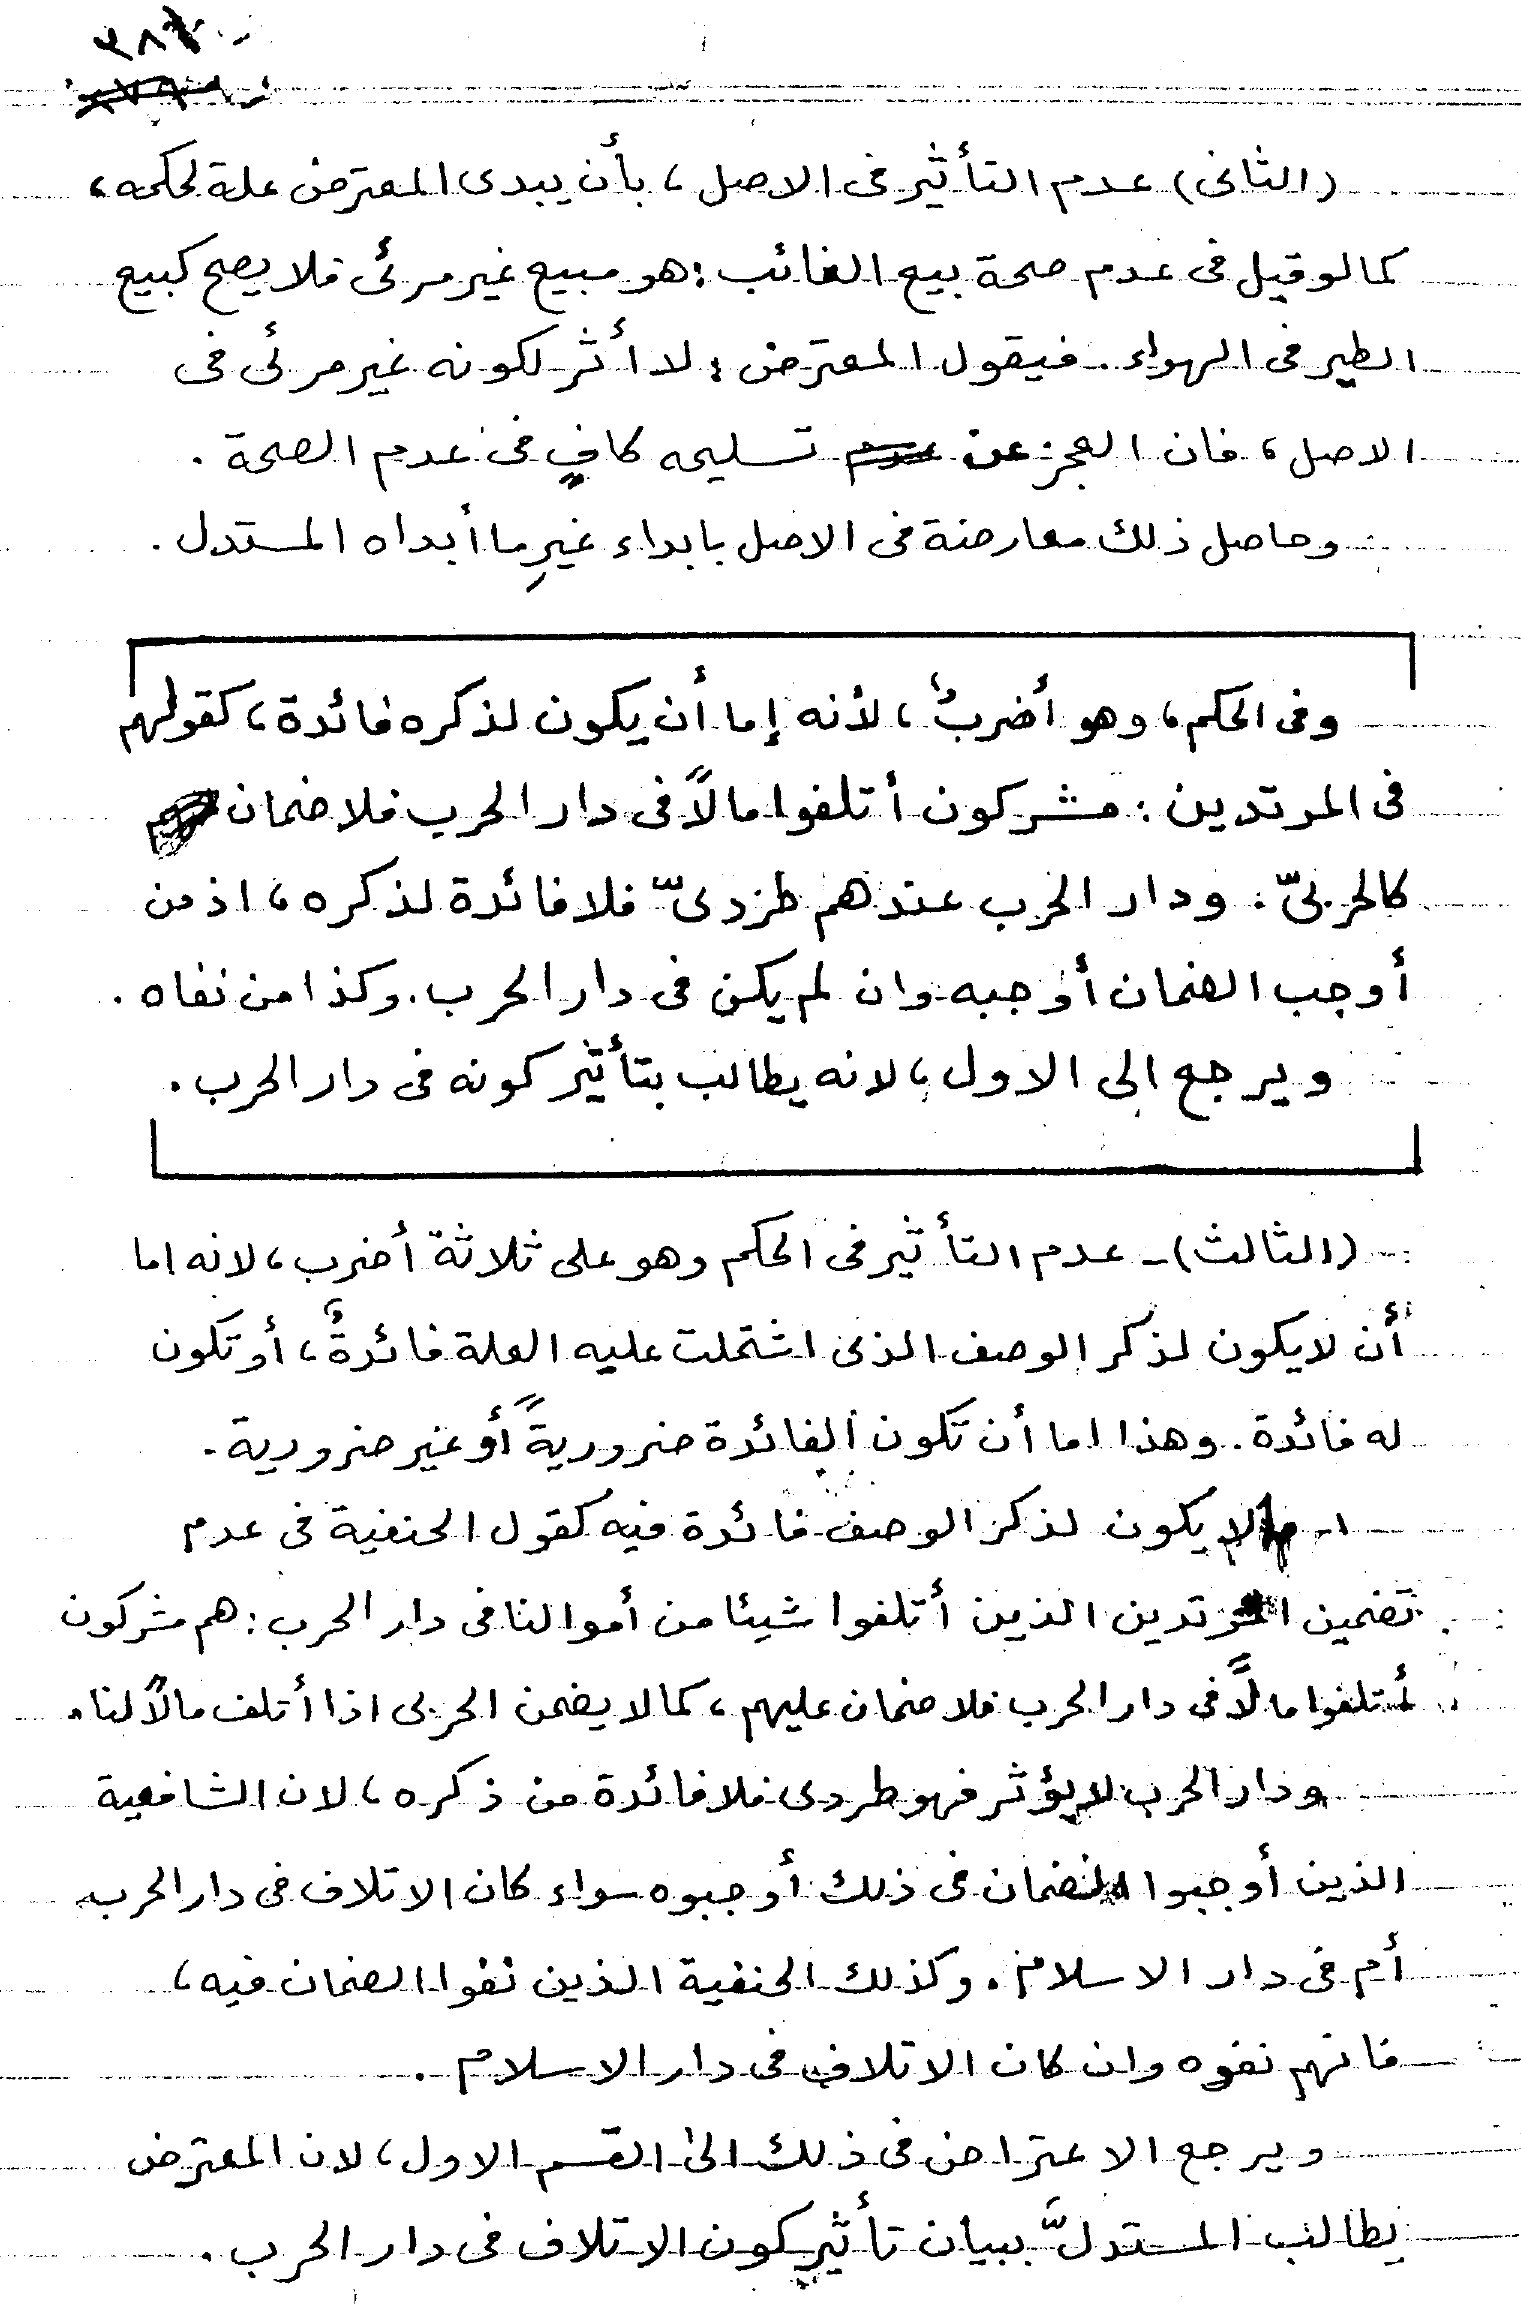 (الثانى) عدم التأثير فى الاصل ، بأن يبدى المعترض علة لحكمه ،
كما لو قيل فى عدم صحة بيع الغائب : هو مبيع غير مرئى فلا يصح كبيع
الطير فى الهواء . فيقول المعترض : لا أثر لكونه غير مرئى فى
الاصل ، فان العجز عن تسليمه كافٍ فى عدم الصحة .
وحاصل ذلك معارضة فى الاصل بابداء غيرِ ما أبداه المستدل .
وفى الحكم ، وهو أضربٌ ، لأنه إما أن يكون لذكره فائدة ، كقولهم
فى المرتدين : مشركون أتلفوا مالاً فى دار الحرب فلا ضمان
كالحربىّ : ودار الحرب عندهم طردىّ فلا فائدة لذكره ، اذ من
أوجب الضمان أوجبه وان لم يكن فى دار الحرب . وكذا من نفاه .
ويرجع الى الاول ، لانه يطالب بتأثير كونه فى دار الحرب .
(الثالث) - عدم التأثير فى الحكم وهو على ثلاثة أضرب ، لانه اما
أن لا يكون لذكر الوصف الذى اشتملت عليه العلة فائدةٌ ، أو تكون
له فائدة . وهذا اما أن تكون الفائدة ضروريةً أو غير ضرورية .
١- لا يكون لذكر الوصف فائدة فيه كقول الحنفية فى عدم
تضمين المرتدين الذين أتلفوا شيئا من أموالنا فى دار الحرب : هم مشركون
أتلفوا مالاً فى دار الحرب فلا ضمان عليهم ، كما لا يضمن الحربى اذا أتلف مالاً لنا .
ودار الحرب لا يؤثر فهو طردى فلا فائدة من ذكره ، لان الشافعية
الذين أوجبوا الضمان فى ذلك أوجبوه سواء كان الاتلاف فى دار الحرب
أم فى دار الاسلام . وكذلك الحنفية الذين نفوا الضمان فيه ،
فانهم نفوه وان كان الاتلاف فى دار الاسلام .
ويرجع الاعتراض فى ذلك الى القسم الاول ، لان المعترض
يطالب المستدلَّ ببيان تأثير كون الاتلاف فى دار الحرب .